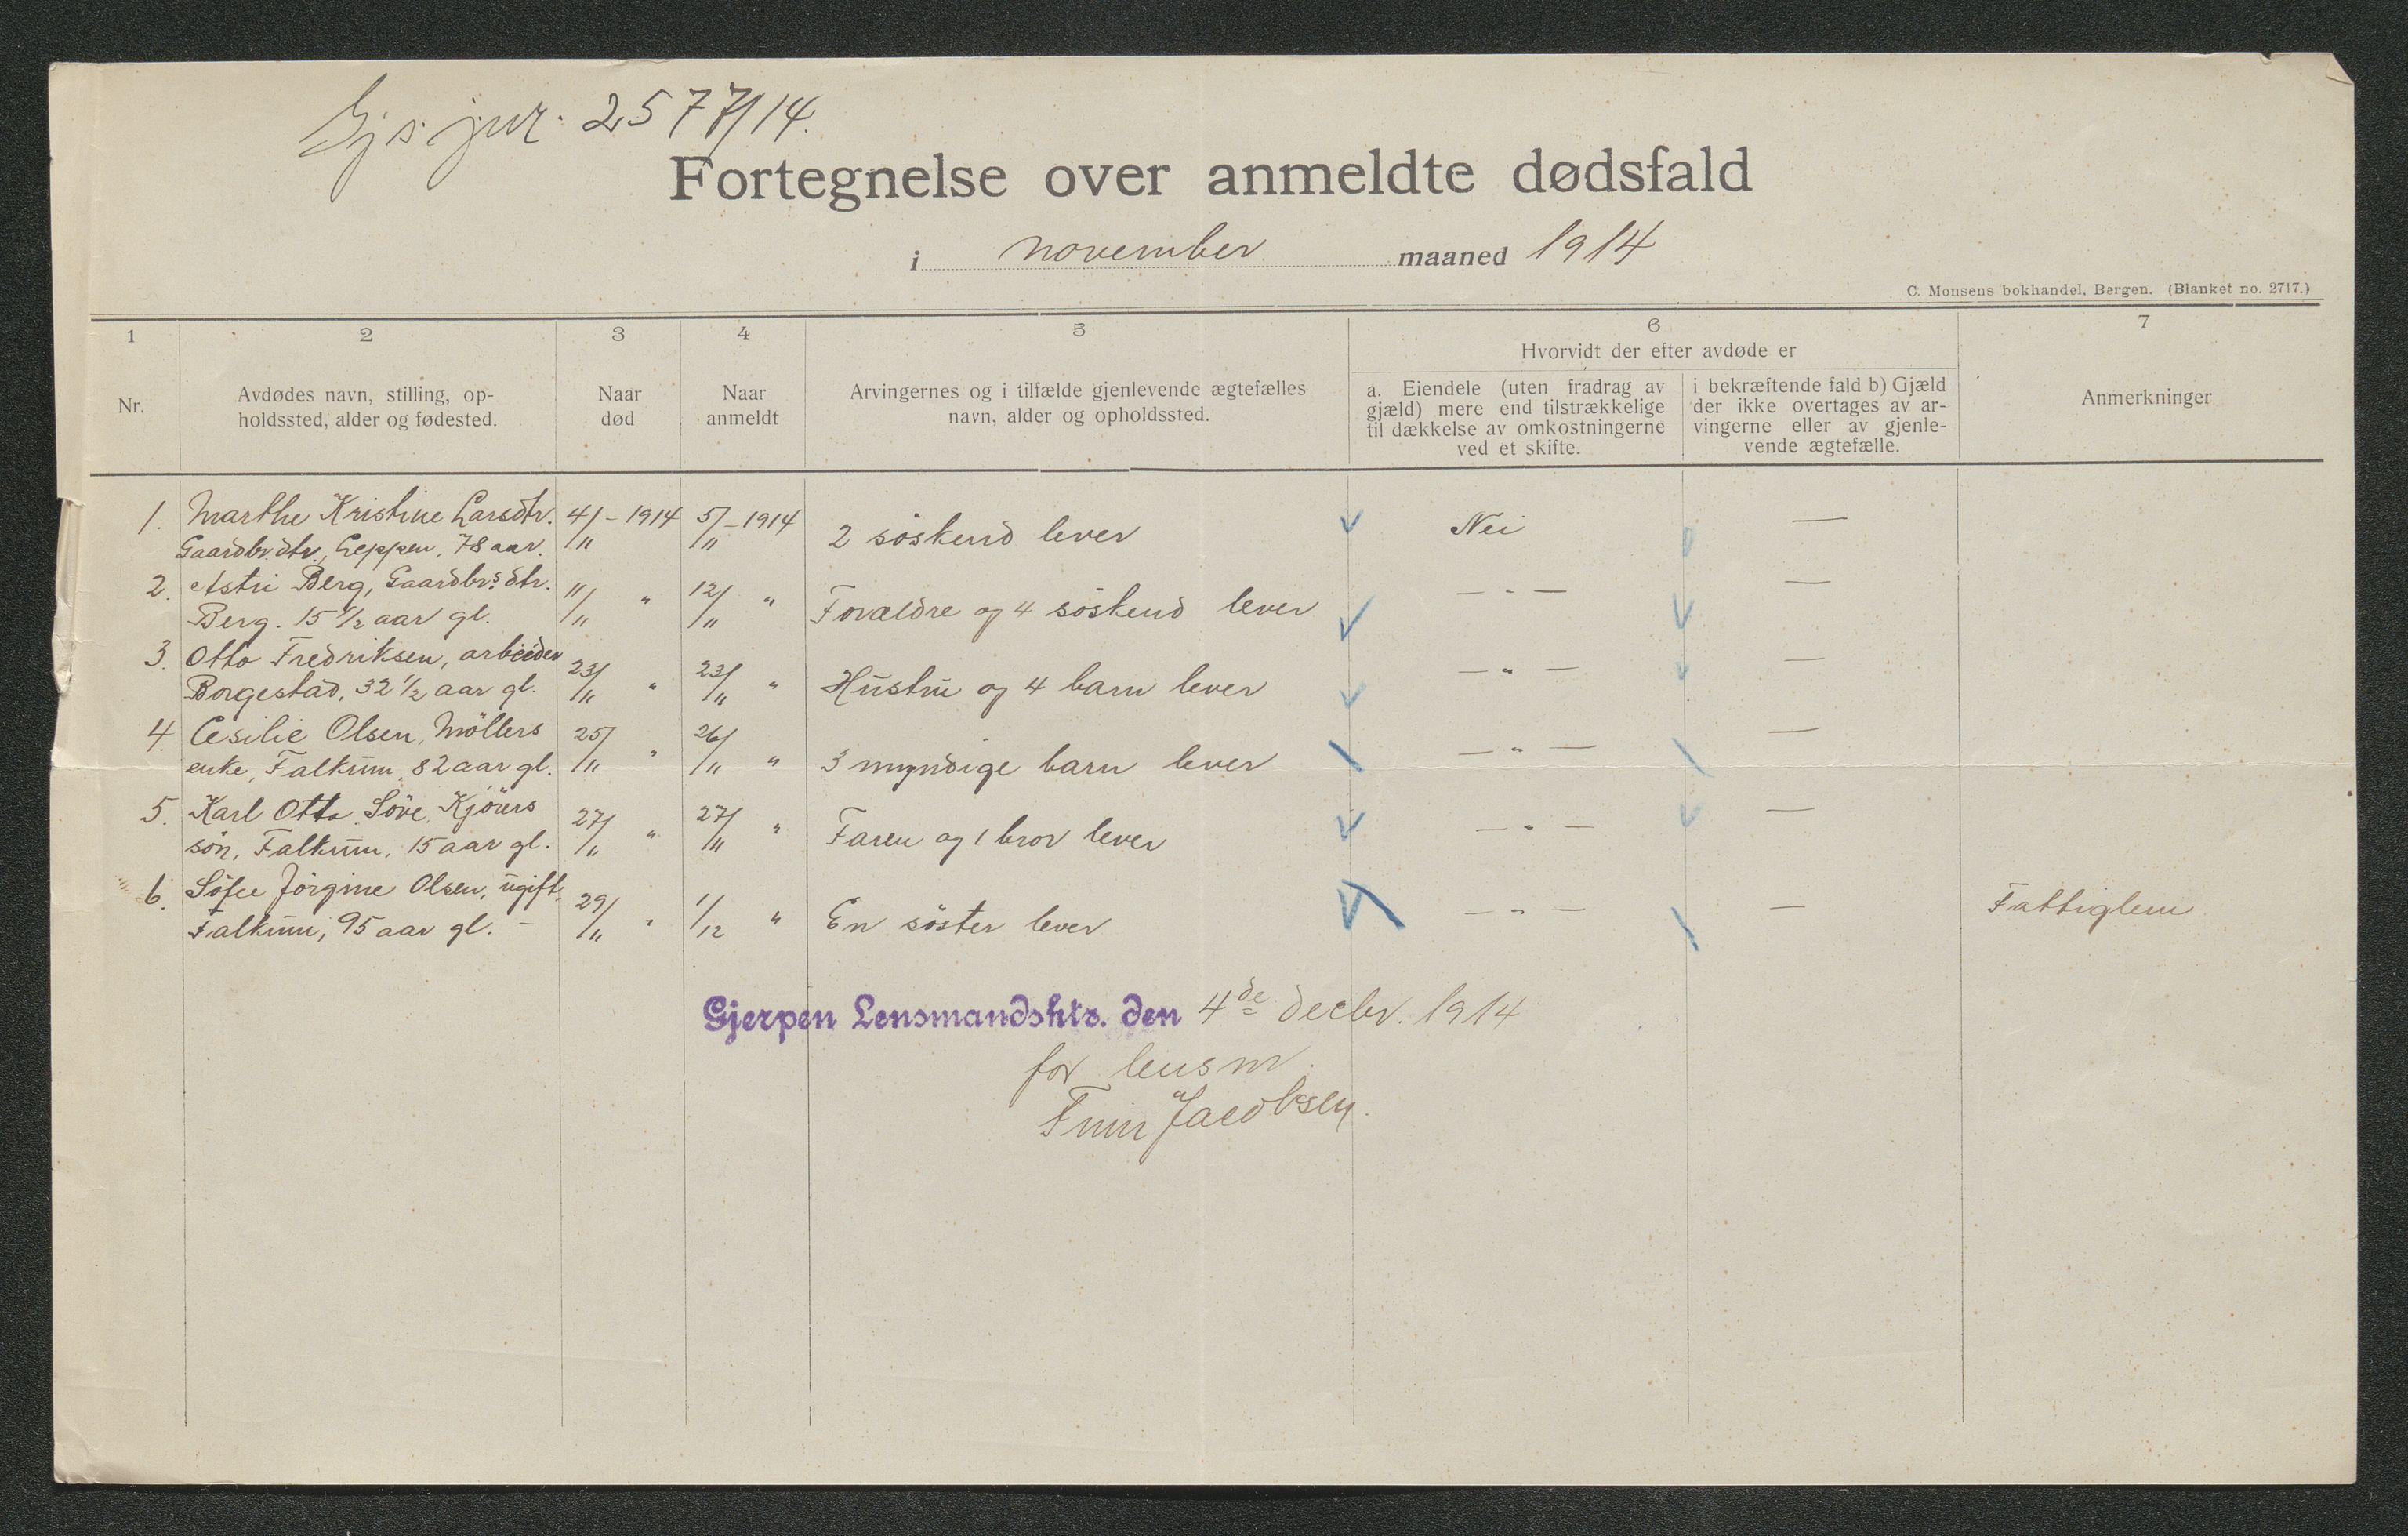 Gjs jnr. 2577/14.
Fortegnelse over anmeldte dødsfald
i november maaned 1914
C. Monsens bokhandel, Bergen. (Blanket no. 2717.)
1 2 3 4 5 6 7
Hvorvidt der efter avdøde er
Nr.
Avdødes navn, stilling, op-
holdssted, alder og fødested.
Naar
død
Naar
anmeldt
Arvingernes og i tilfælde gjenlevende ægtefælles
navn, alder og opholdssted.
a. Eiendele (uten fradrag av
gjæld) mere end tilstrækkelige
til dækkelse av omkostningerne
ved et skifte.
i bekræftende fald b) Gjæld
der ikke overtages av ar-
vingerne eller av gjenle-
vende ægtefælle.
Anmerkninger
1. Marthe Kristine Larsdtr. 4/11 - 1914 5/11 - 1914 2 söskend lever Nei —
Gaardbr.dtr., Leppen, 78 aar.
2. Astri Berg, Gaardbrs. dtr. 11/11 " 12/11 " Forældre og 4 söskend lever — " — —
Berg. 15 1/2 aar gl.
3. Otto Fredriksen, arbeider 23/11 " 23/11 " Hustru og 4 barn lever — " — —
Borgestad, 32 1/2 aar gl.
4. Cesilie Olsen, Möllers 25/11 " 26/11 " 3 myndige barn lever — " — —
enke, Falkum, 82 aar gl.
5. Karl Otto Löve, Kjörers 27/11 " 27/11 " Faren og 1 bror lever — " — —
sön, Falkum, 15 aar gl.
6. Söfie Jörgine Olsen, ugift, 29/11 " 1/12 " En söster lever — " — — Fattiglem
Falkum, 95 aar gl. —
Gjerpen Lensmandsktr. den 4de decbr. 1914
for lensm.
Finn Jacobsen.